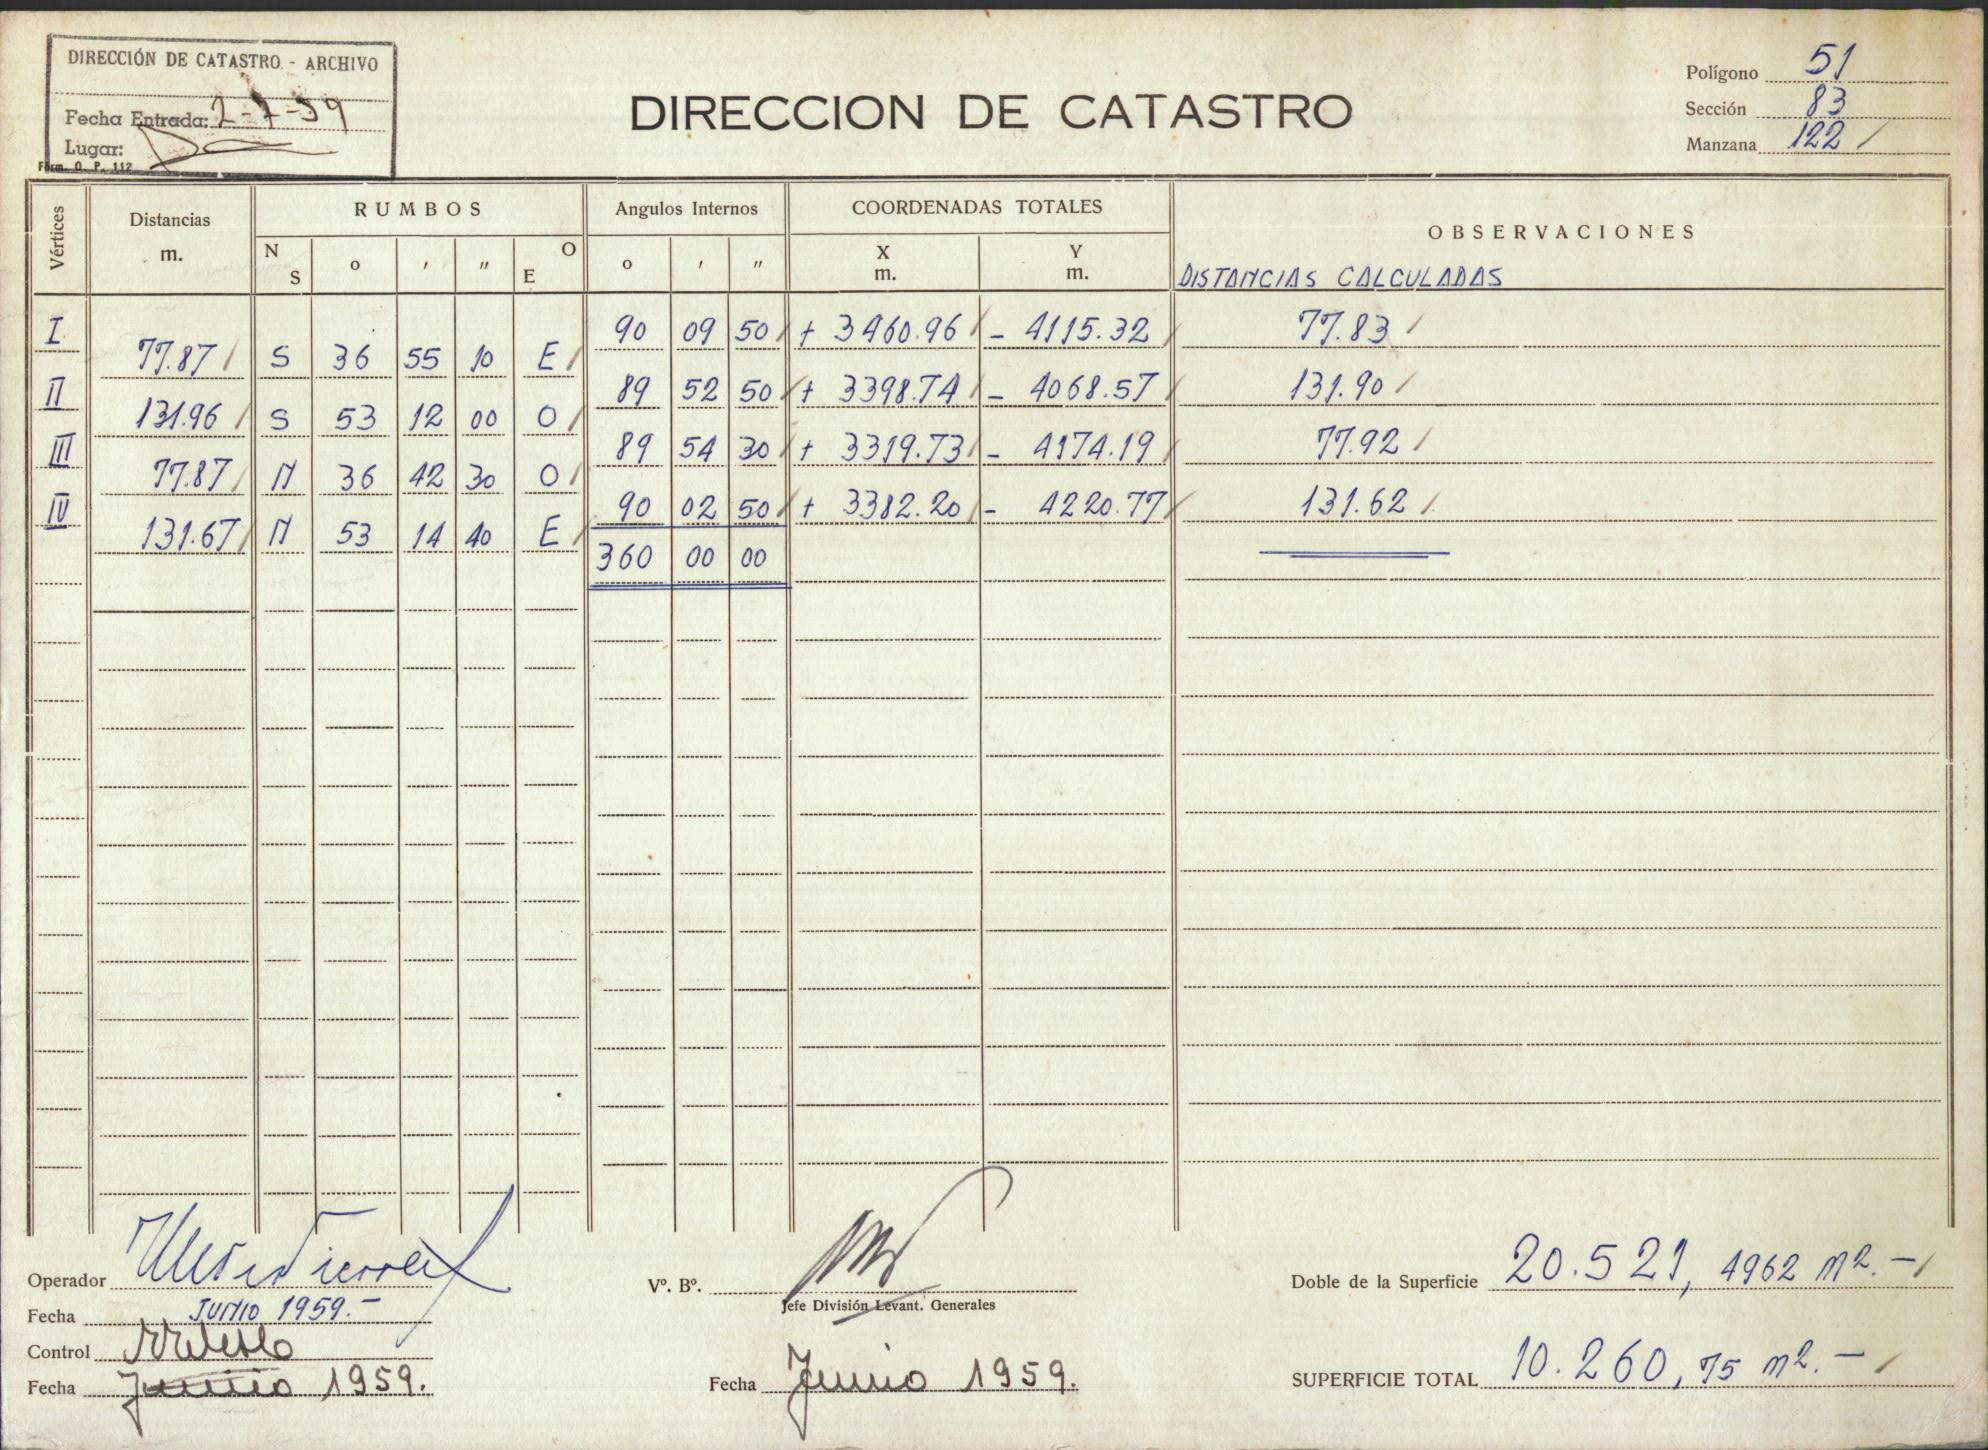 DIRECCIÓN DE CATASTRO - ARCHIVO
Fecha Entrada: 2-7-59
Lugar:
Form. O. P. 112
DIRECCION DE CATASTRO
Polígono 51
Sección 83
Manzana 122
Vértices Distancias m. RUMBOS N S o ' " O E Angulos Internos o ' " COORDENADAS TOTALES X m. Y m. OBSERVACIONES
DISTANCIAS CALCULADAS
I 90 09 50 + 3460.96 - 4115.32 77.83
77.87 S 36 55 10 E
II 89 52 50 + 3398.74 - 4068.57 131.90
131.96 S 53 12 00 O
III 89 54 30 + 3319.73 - 4174.19 77.92
77.87 N 36 42 30 O
IV 90 02 50 + 3382.20 - 4220.77 131.62
131.67 N 53 14 40 E
360 00 00
Operador
Fecha JUNIO 1959.-
Control
Fecha Junio 1959.
Vº. Bº.
Jefe División Levant. Generales
Fecha Junio 1959.
Doble de la Superficie 20.521, 4962 m2.-
SUPERFICIE TOTAL 10.260, 75 m2.-